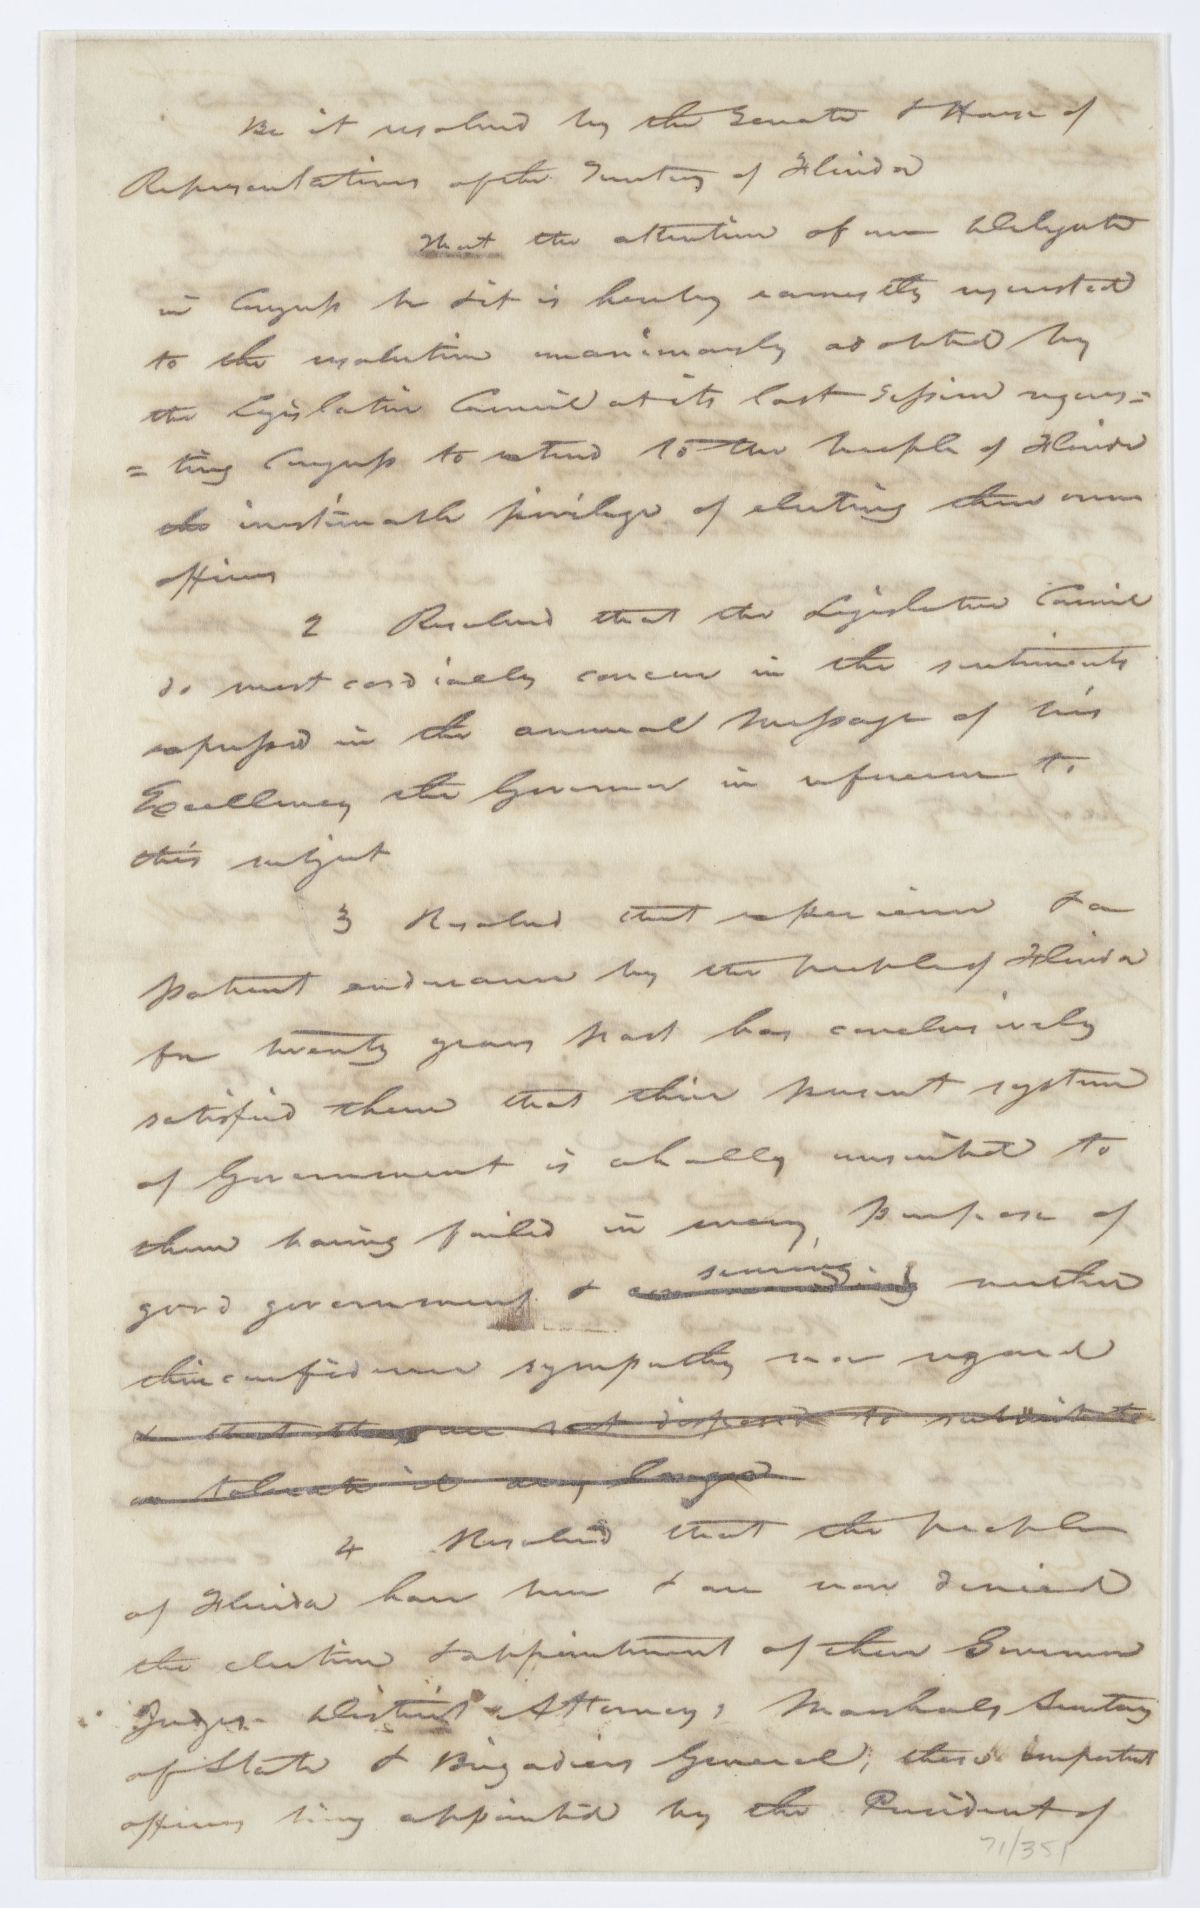 Be it resolved by the Senate & House of
Representatives of the Territory of Florida
That the attention of our Delegate
in Congress be & it is hereby earnestly requested
to the resolution unanimously adopted by
the Legislative Council at its last Session reques=
=ting Congress to extend to the people of Florida
the inestimable privilege of electing their own
officers
2 Resolved that the Legislative Council
do most cordially concur in the sentiments
expressed in the annual Message of his
Excellency the Governor in reference to
this subject
3 Resolved that experience & a
patient endurance by the people of Florida
for twenty years past has conclusively
satisfied them that their present system
of Government is wholly unsuited to
them having failed in every purpose of
good government & securing neither
their confidence sympathy nor regard
& that they are not disposed to submit to
or tolerate it any longer
4 Resolved that the people
of Florida have been & are now denied
the election & appointment of their Governor
Judges District Attorneys Marshals Secretary
of State & Brigadiers General, these important
officers being appointed by the President of
71/351